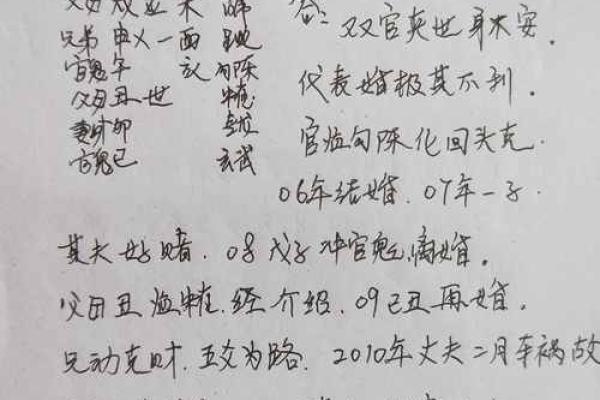 兄弟申乂一
官鬼午 勾陈
父母丑世
妻财卯
官鬼巳 玄武
双官夹世身不安.
代表婚极其不利.
官临勾陈化回头克.
06年结婚.07年一子.
其夫好赌.08戊子冲官鬼,离婚.
父母丑临 经介绍.09己丑再婚.
兄动克财.五爻为路.2010年丈夫二月车祸故